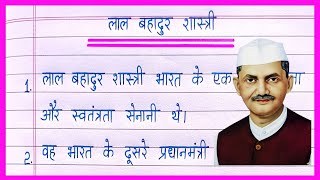 लाल बहादुर शास्त्री
1. लाल बहादुर शास्त्री भारत के एक
और स्वतंत्रता सेनानी थे।
2. वह भारत के दूसरे प्रधानमंत्री